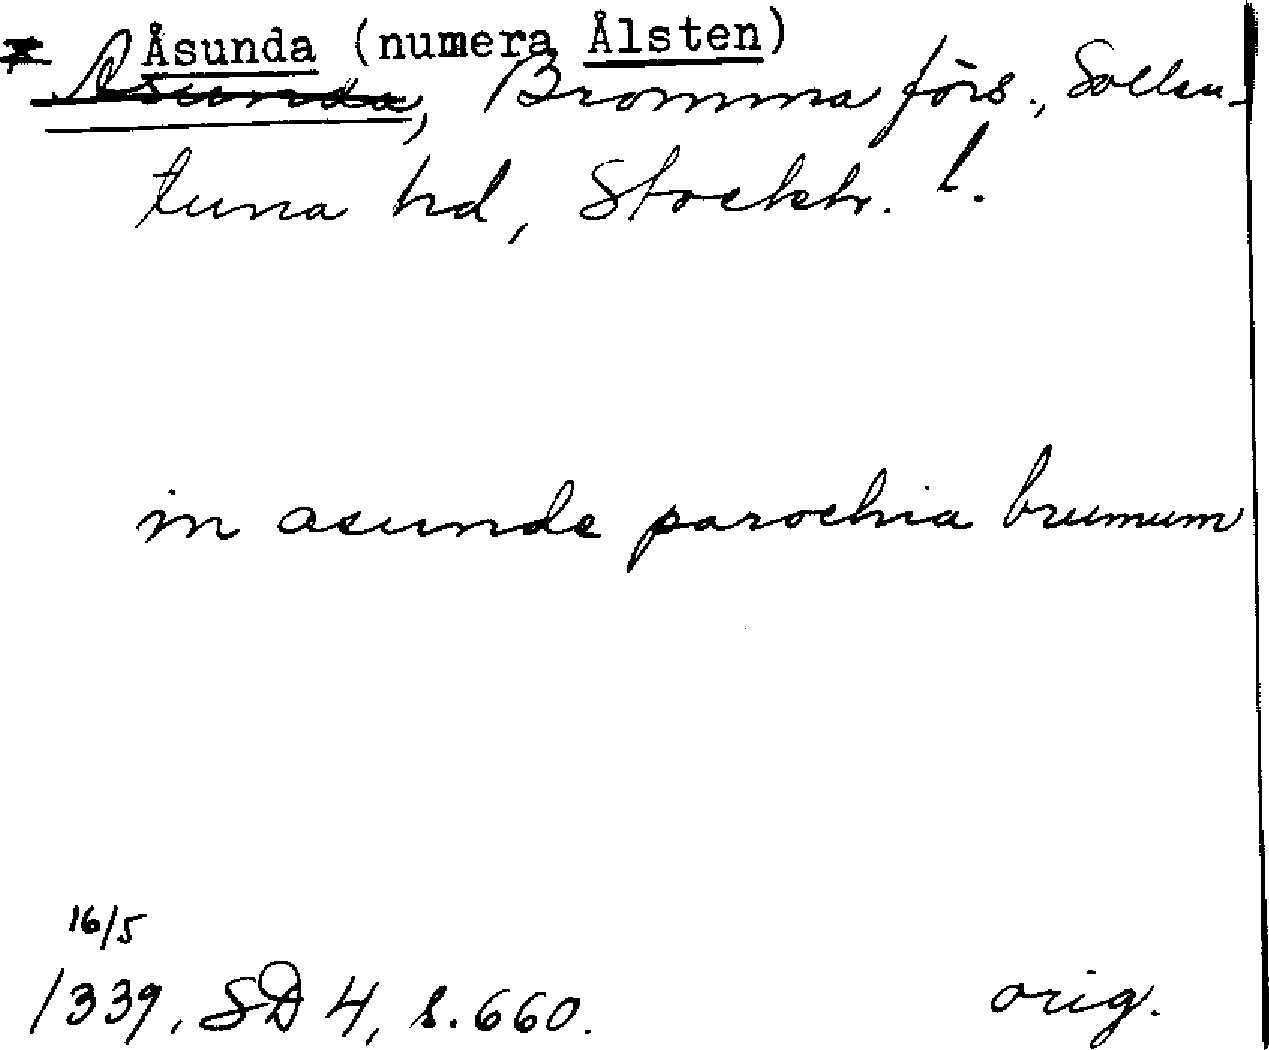 * Åsunda (numera Ålsten)
Åsunda, Bromma förs., Sollen-
tuna hd, Stockh. l.
in asunde parochia brumum
16/5
1339, SD 4, s. 660. orig.